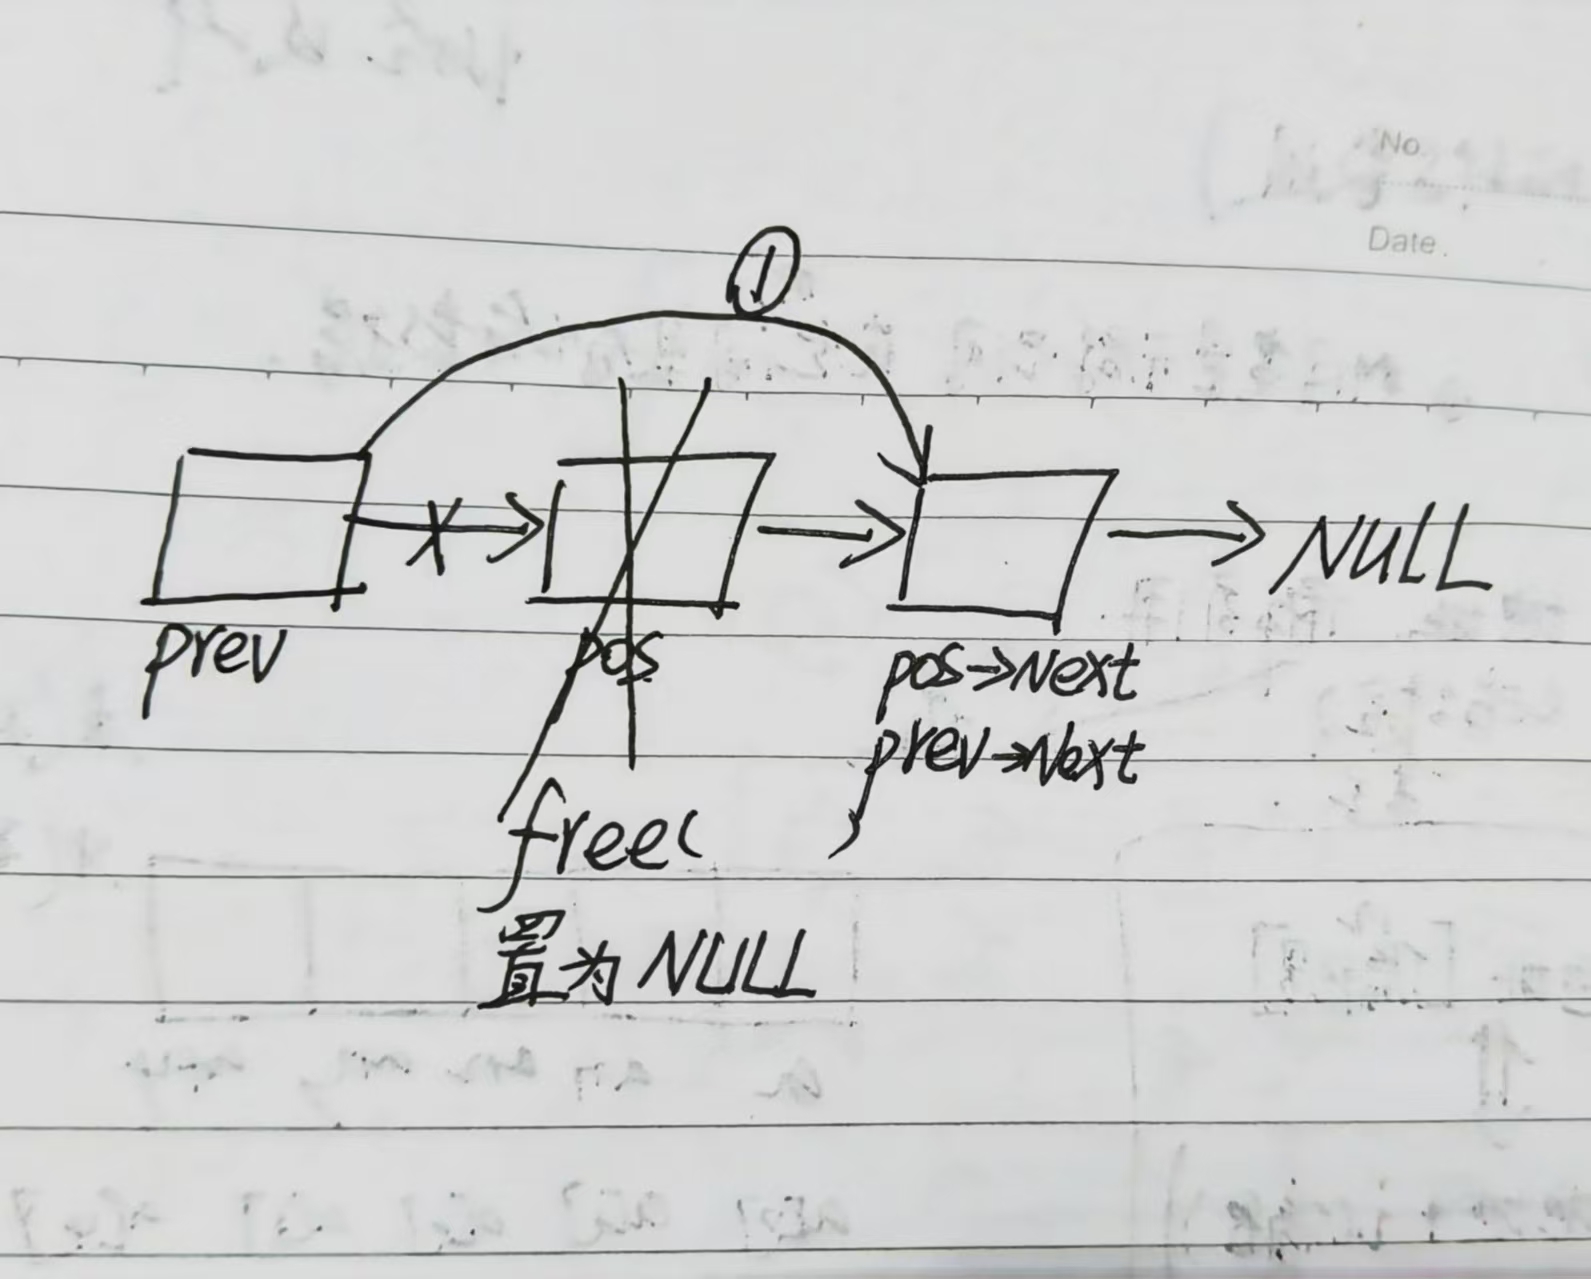 No.
Date.
①
NULL
prev
pos
pos→Next
prev→Next
free( )
置为NULL